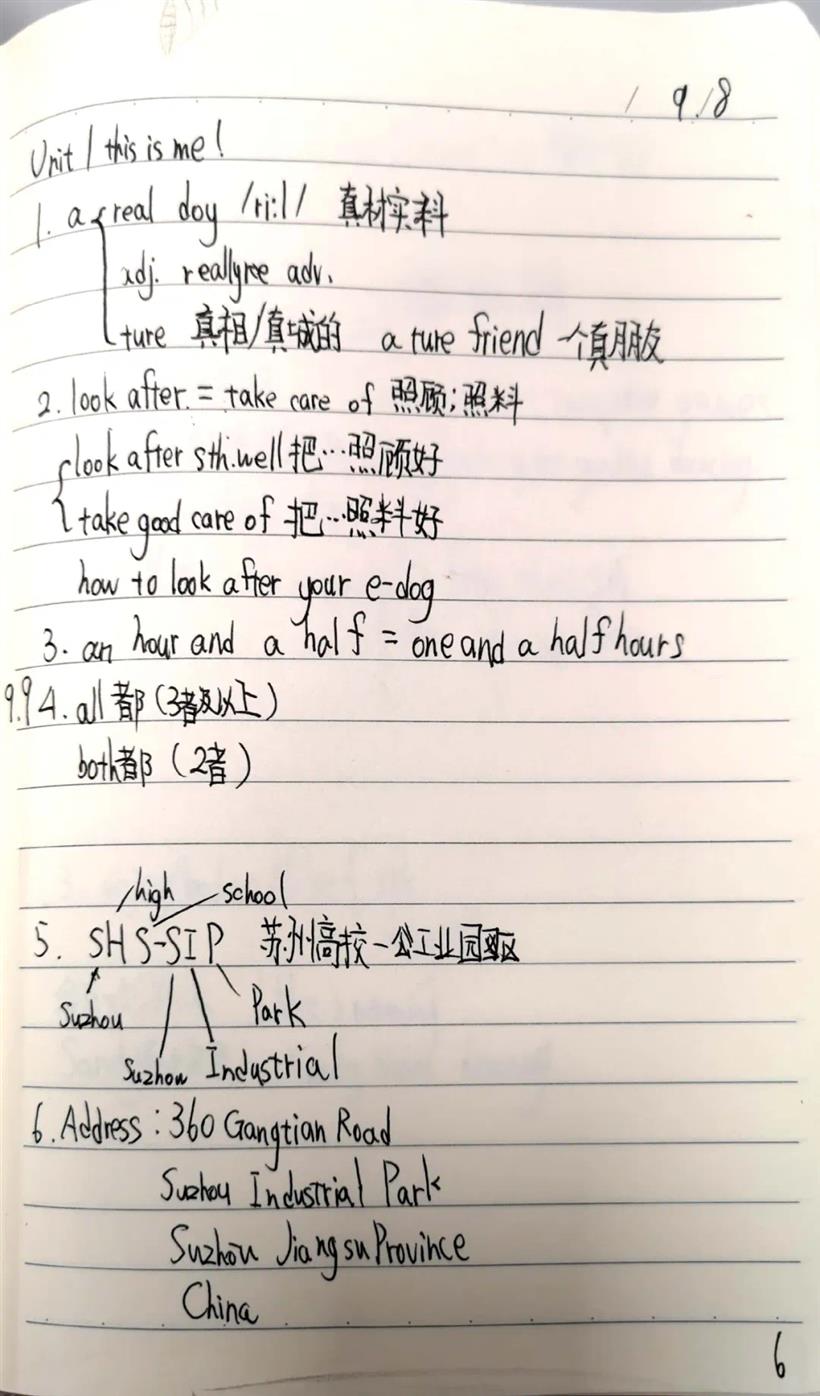 9.8
Unit 1 this is me!
1. a real doy /ri:l/ 真材实料
adj. really adv.
ture 真相/真城的 a ture friend 一个真朋友
2. look after. = take care of 照顾;照料
look after sth.well 把…照顾好
take good care of 把…照料好
how to look after your e-dog
3. an hour and a half = one and a half hours
9.9 4. all 都(3者及以上)
both都(2者)
high school
5. SHS-SIP 苏州高校-公工业园区
Suzhou Park
Suzhou Industrial
6. Address: 360 Gangtian Road
Suzhou Industrial Park
Suzhou Jiangsu Province
China
6